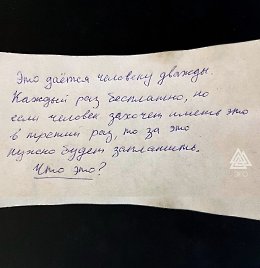 Это даётся человеку дважды.
Каждый раз бесплатно, но
если человек захочет иметь это
в третий раз, то за это
нужно будет заплатить.
Что это?